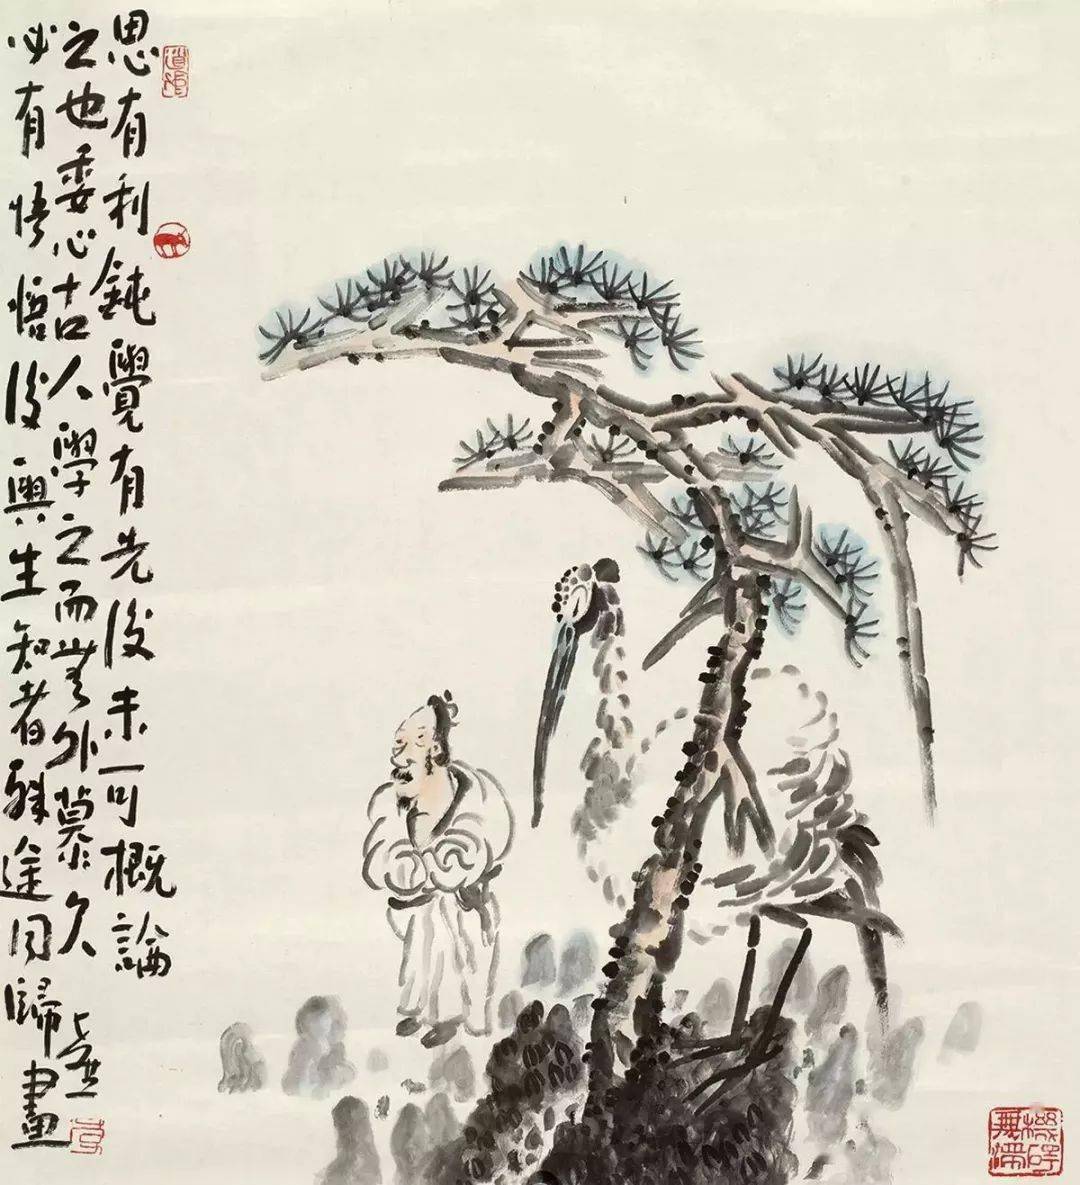 思有利鈍覺有先後未可概論
之也委心古人學之而無外慕久
必有悟悟後與生知者殊途同歸畫